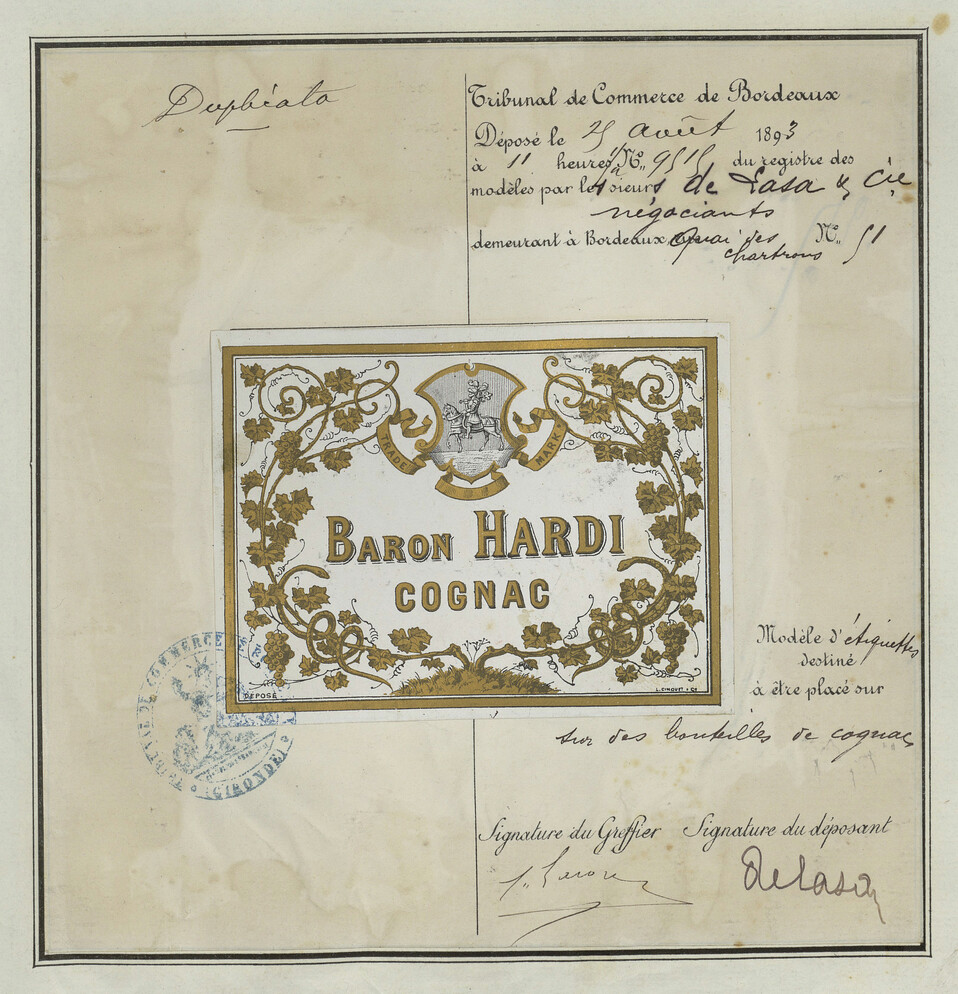 Duplicata
Tribunal de Commerce de Bordeaux
Déposé le 25 août 1893
à 11 heures N° 9515 du registre des
modèles par les sieurs de Lasa & Cie
négociants
demeurant à Bordeaux Quai des N° 51
chartrons
TRADE MARK
BARON HARDI
COGNAC
DÉPOSÉ
Modèle d'étiquettes
destiné
à être placé sur
sur des bouteilles de cognac
TRIBUNAL DE COMMERCE
(GIRONDE)
Signature du Greffier Signature du déposant
De Lasa